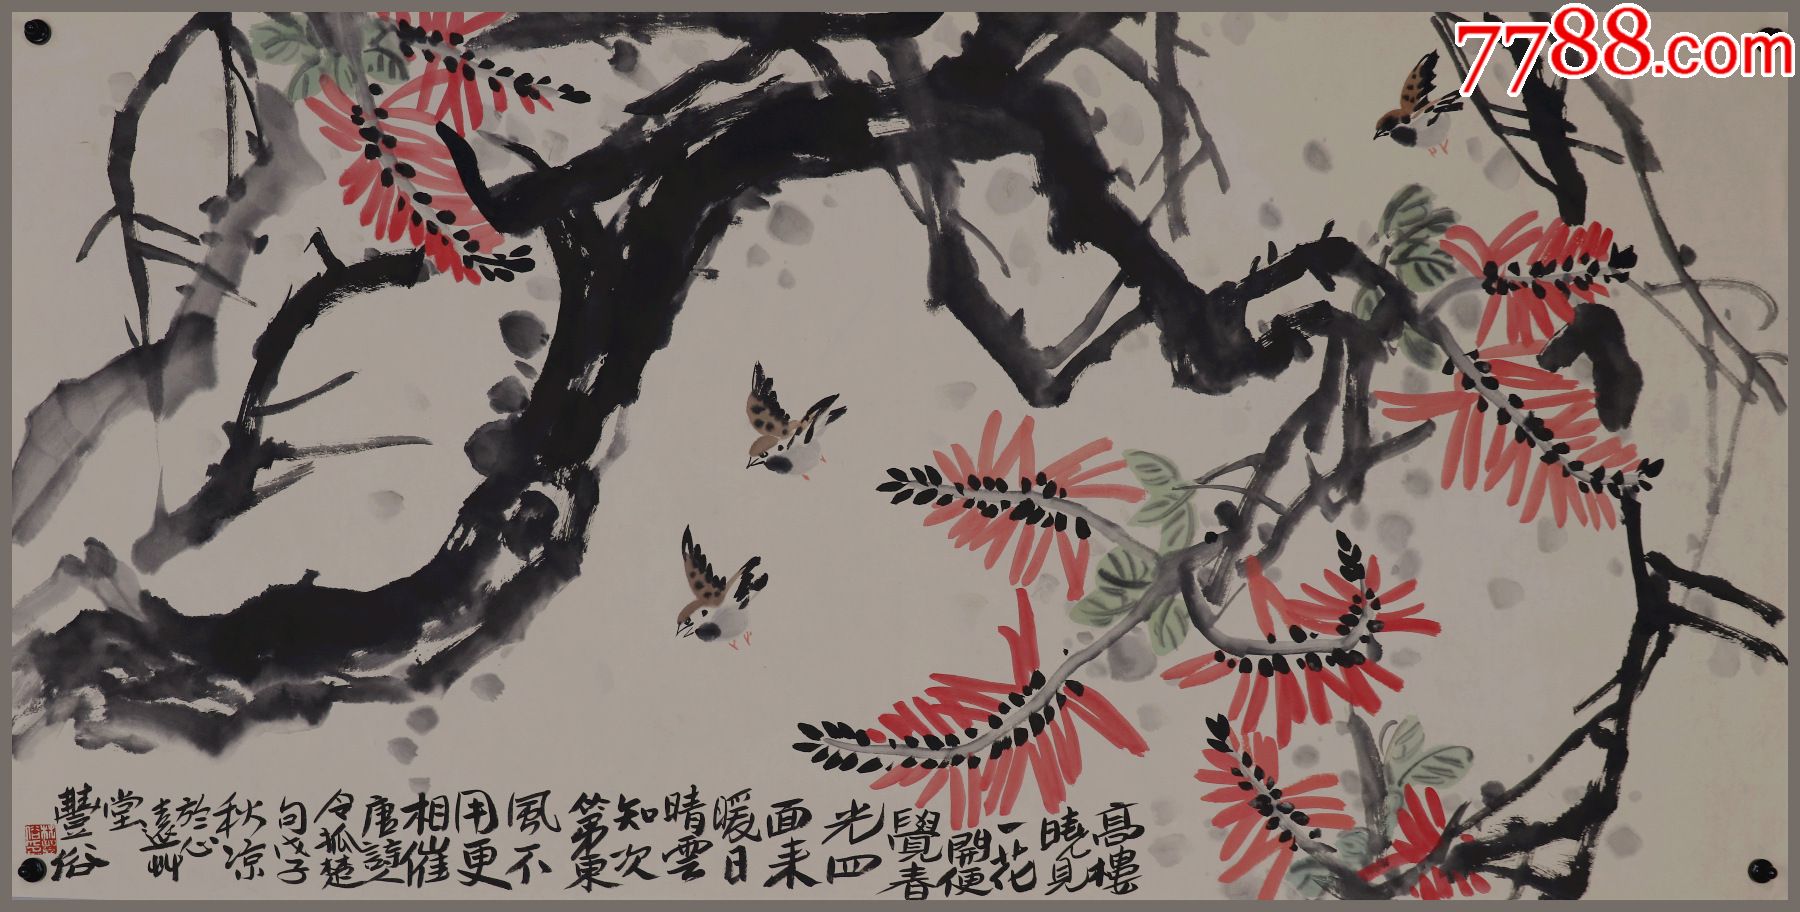 高樓
曉見
一花
開便
覺春
光四
面来
暖日
晴雲
知次
第東
風不
用更
相催
唐
令狐楚
句戊子
秋凉
於心
遠艸
堂
豐俗
7788.com